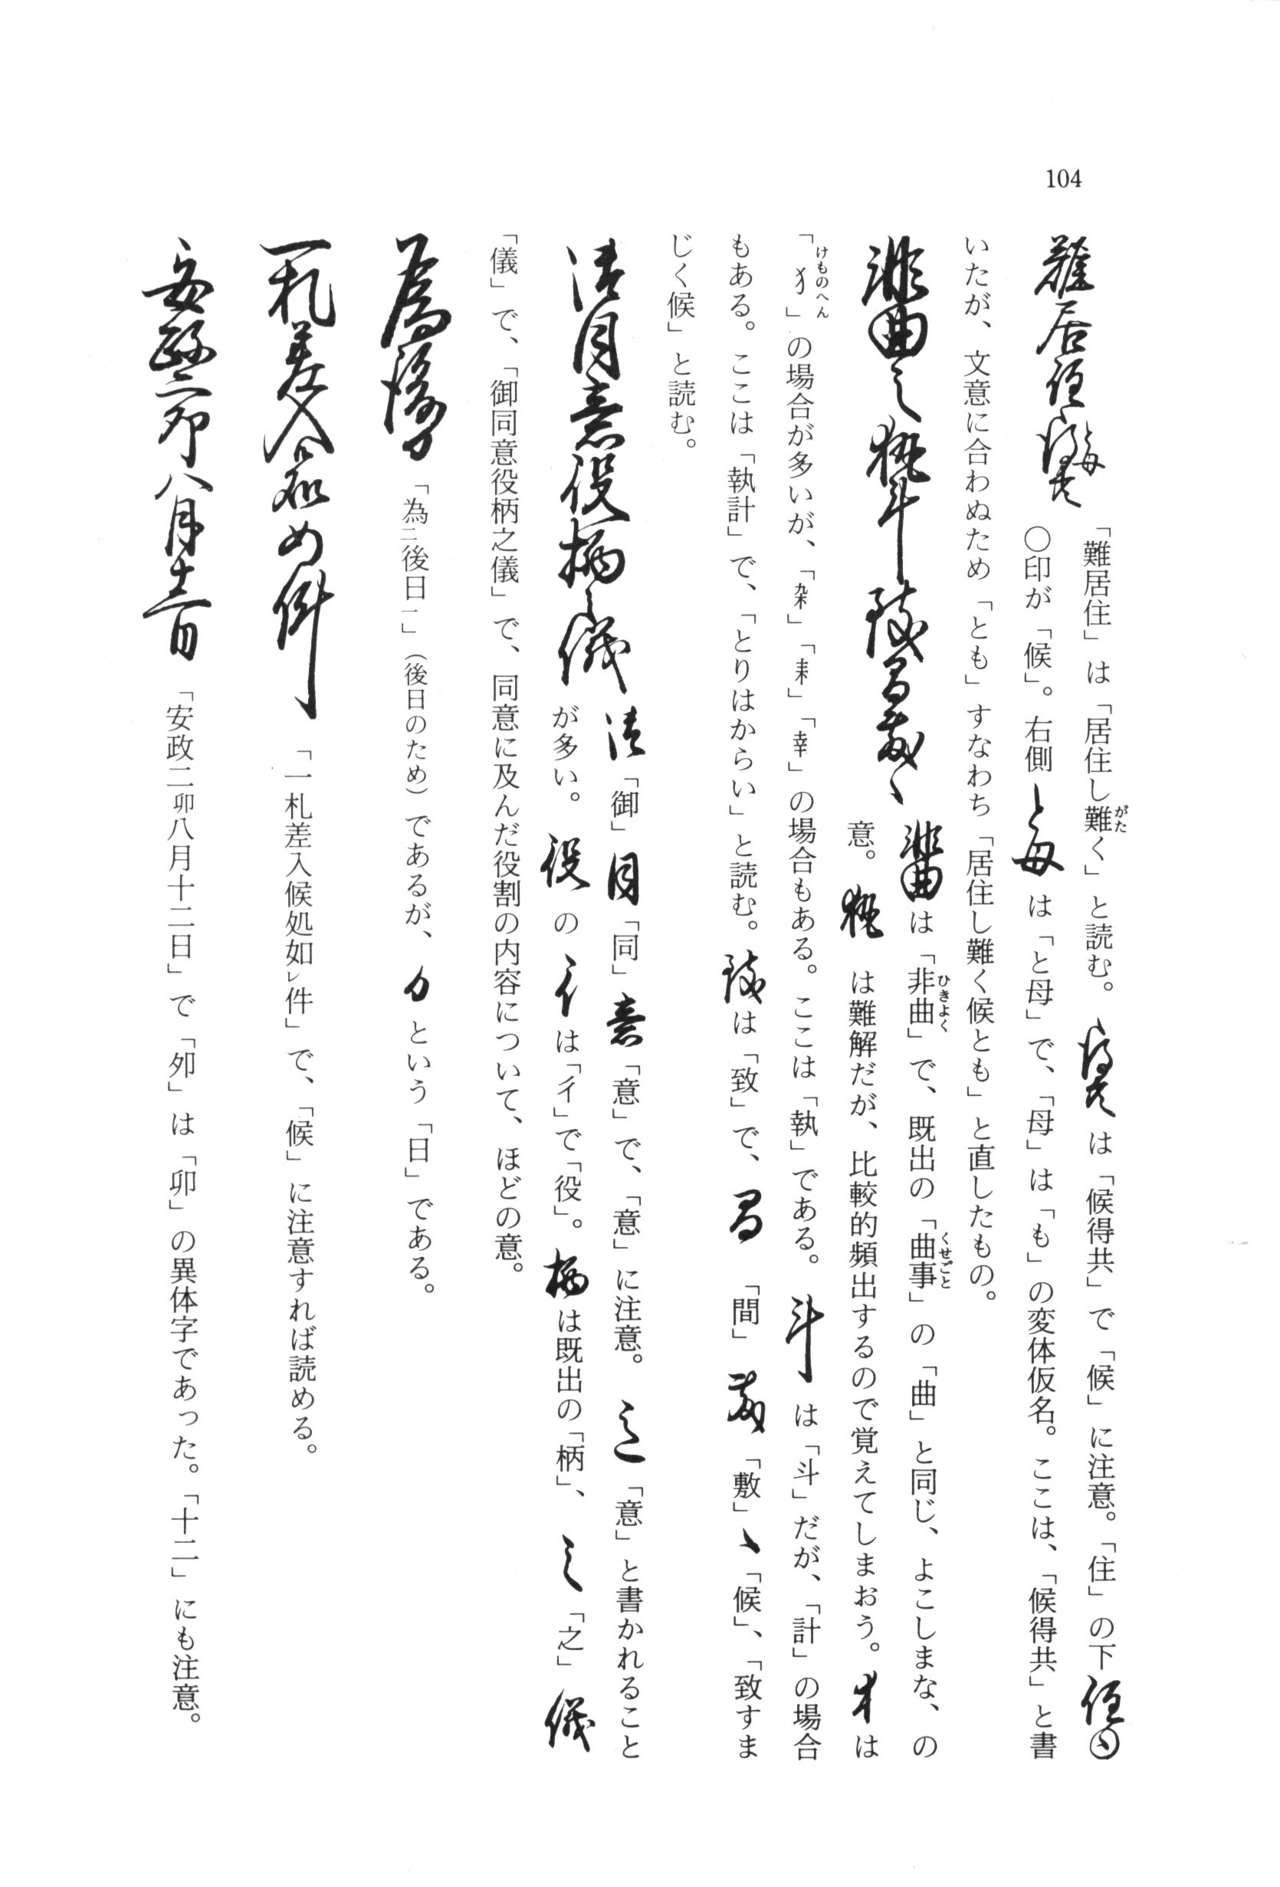 104
難居住候得共
「難居住」は「居住し難く」と読む。候得共は「候得共」で「候」に注意。「住」の下住候
〇印が「候」。右側と母は「と母」で、「母」は「も」の変体仮名。ここは、「候得共」と書
いたが、文意に合わぬため「とも」すなわち「居住し難く候とも」と直したもの。
非曲之執斗致間敷候
非曲は「非曲」で、既出の「曲事」の「曲」と同じ、よこしまな、の
意。執は難解だが、比較的頻出するので覚えてしまおう。は
「犭」の場合が多いが、「」「」「幸」の場合もある。ここは「執」である。斗は「斗」だが、「計」の場合
もある。ここは「執計」で、「とりはからい」と読む。致は「致」で、間「間」敷「敷」候「候」、「致すま
じく候」と読む。
御同意役柄之儀
御「御」同「同」意「意」で、「意」に注意。「意」と書かれること
が多い。役の彳は「イ」で「役」。柄は既出の「柄」、之「之」儀
「儀」で、「御同意役柄之儀」で、同意に及んだ役割の内容について、ほどの意。
為後日
「為二後日一」（後日のため）であるが、日という「日」である。
一札差入候処如件
「一札差入候処如レ件」で、「候」に注意すれば読める。
安政二夘八月十二日
「安政二卯八月十二日」で「夘」は「卯」の異体字であった。「十二」にも注意。